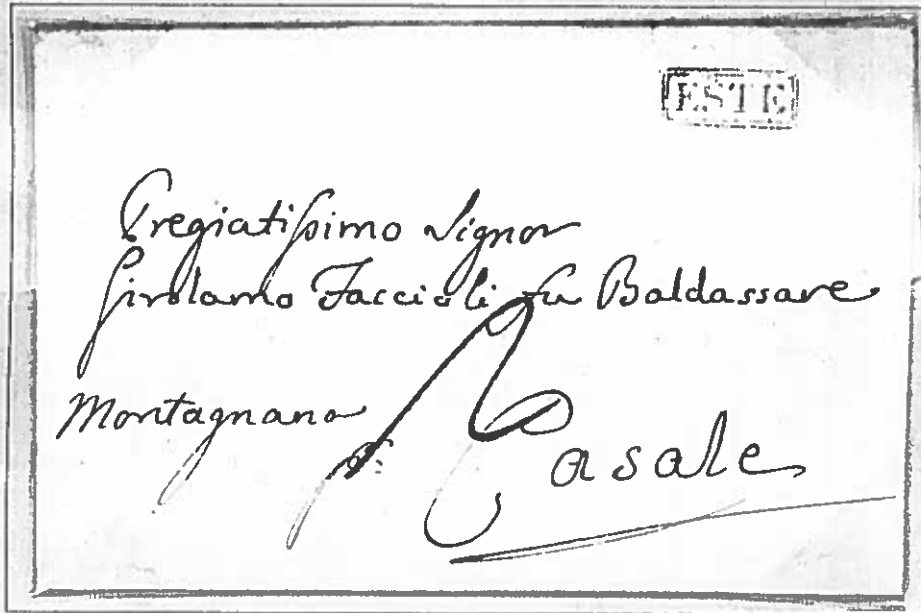 ESTE
Pregiatissimo Signor
Girolamo Faccioli fu Baldassare
Montagnana
p. Casale